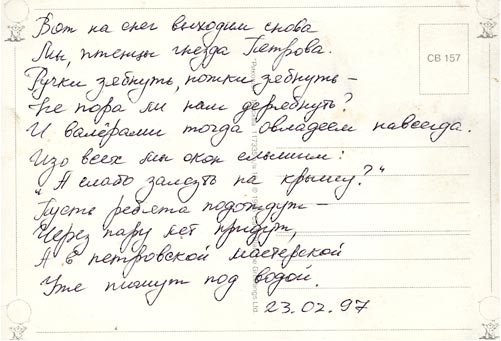 Вот на снег выходим снова
Мы, птенцы гнезда Петрова.
Ручки зябнуть, ножки зябнуть –
Не пора ли нам дерябнуть?
И валерами тогда овладеем навсегда.
Изо всех мы окон слышим:
"А слабо залезть на крышу?"
Пусть ребята подождут –
Через пару лет придут,
А в петровской мастерской
Уже пишут под водой.
23.02.97
СВ 157